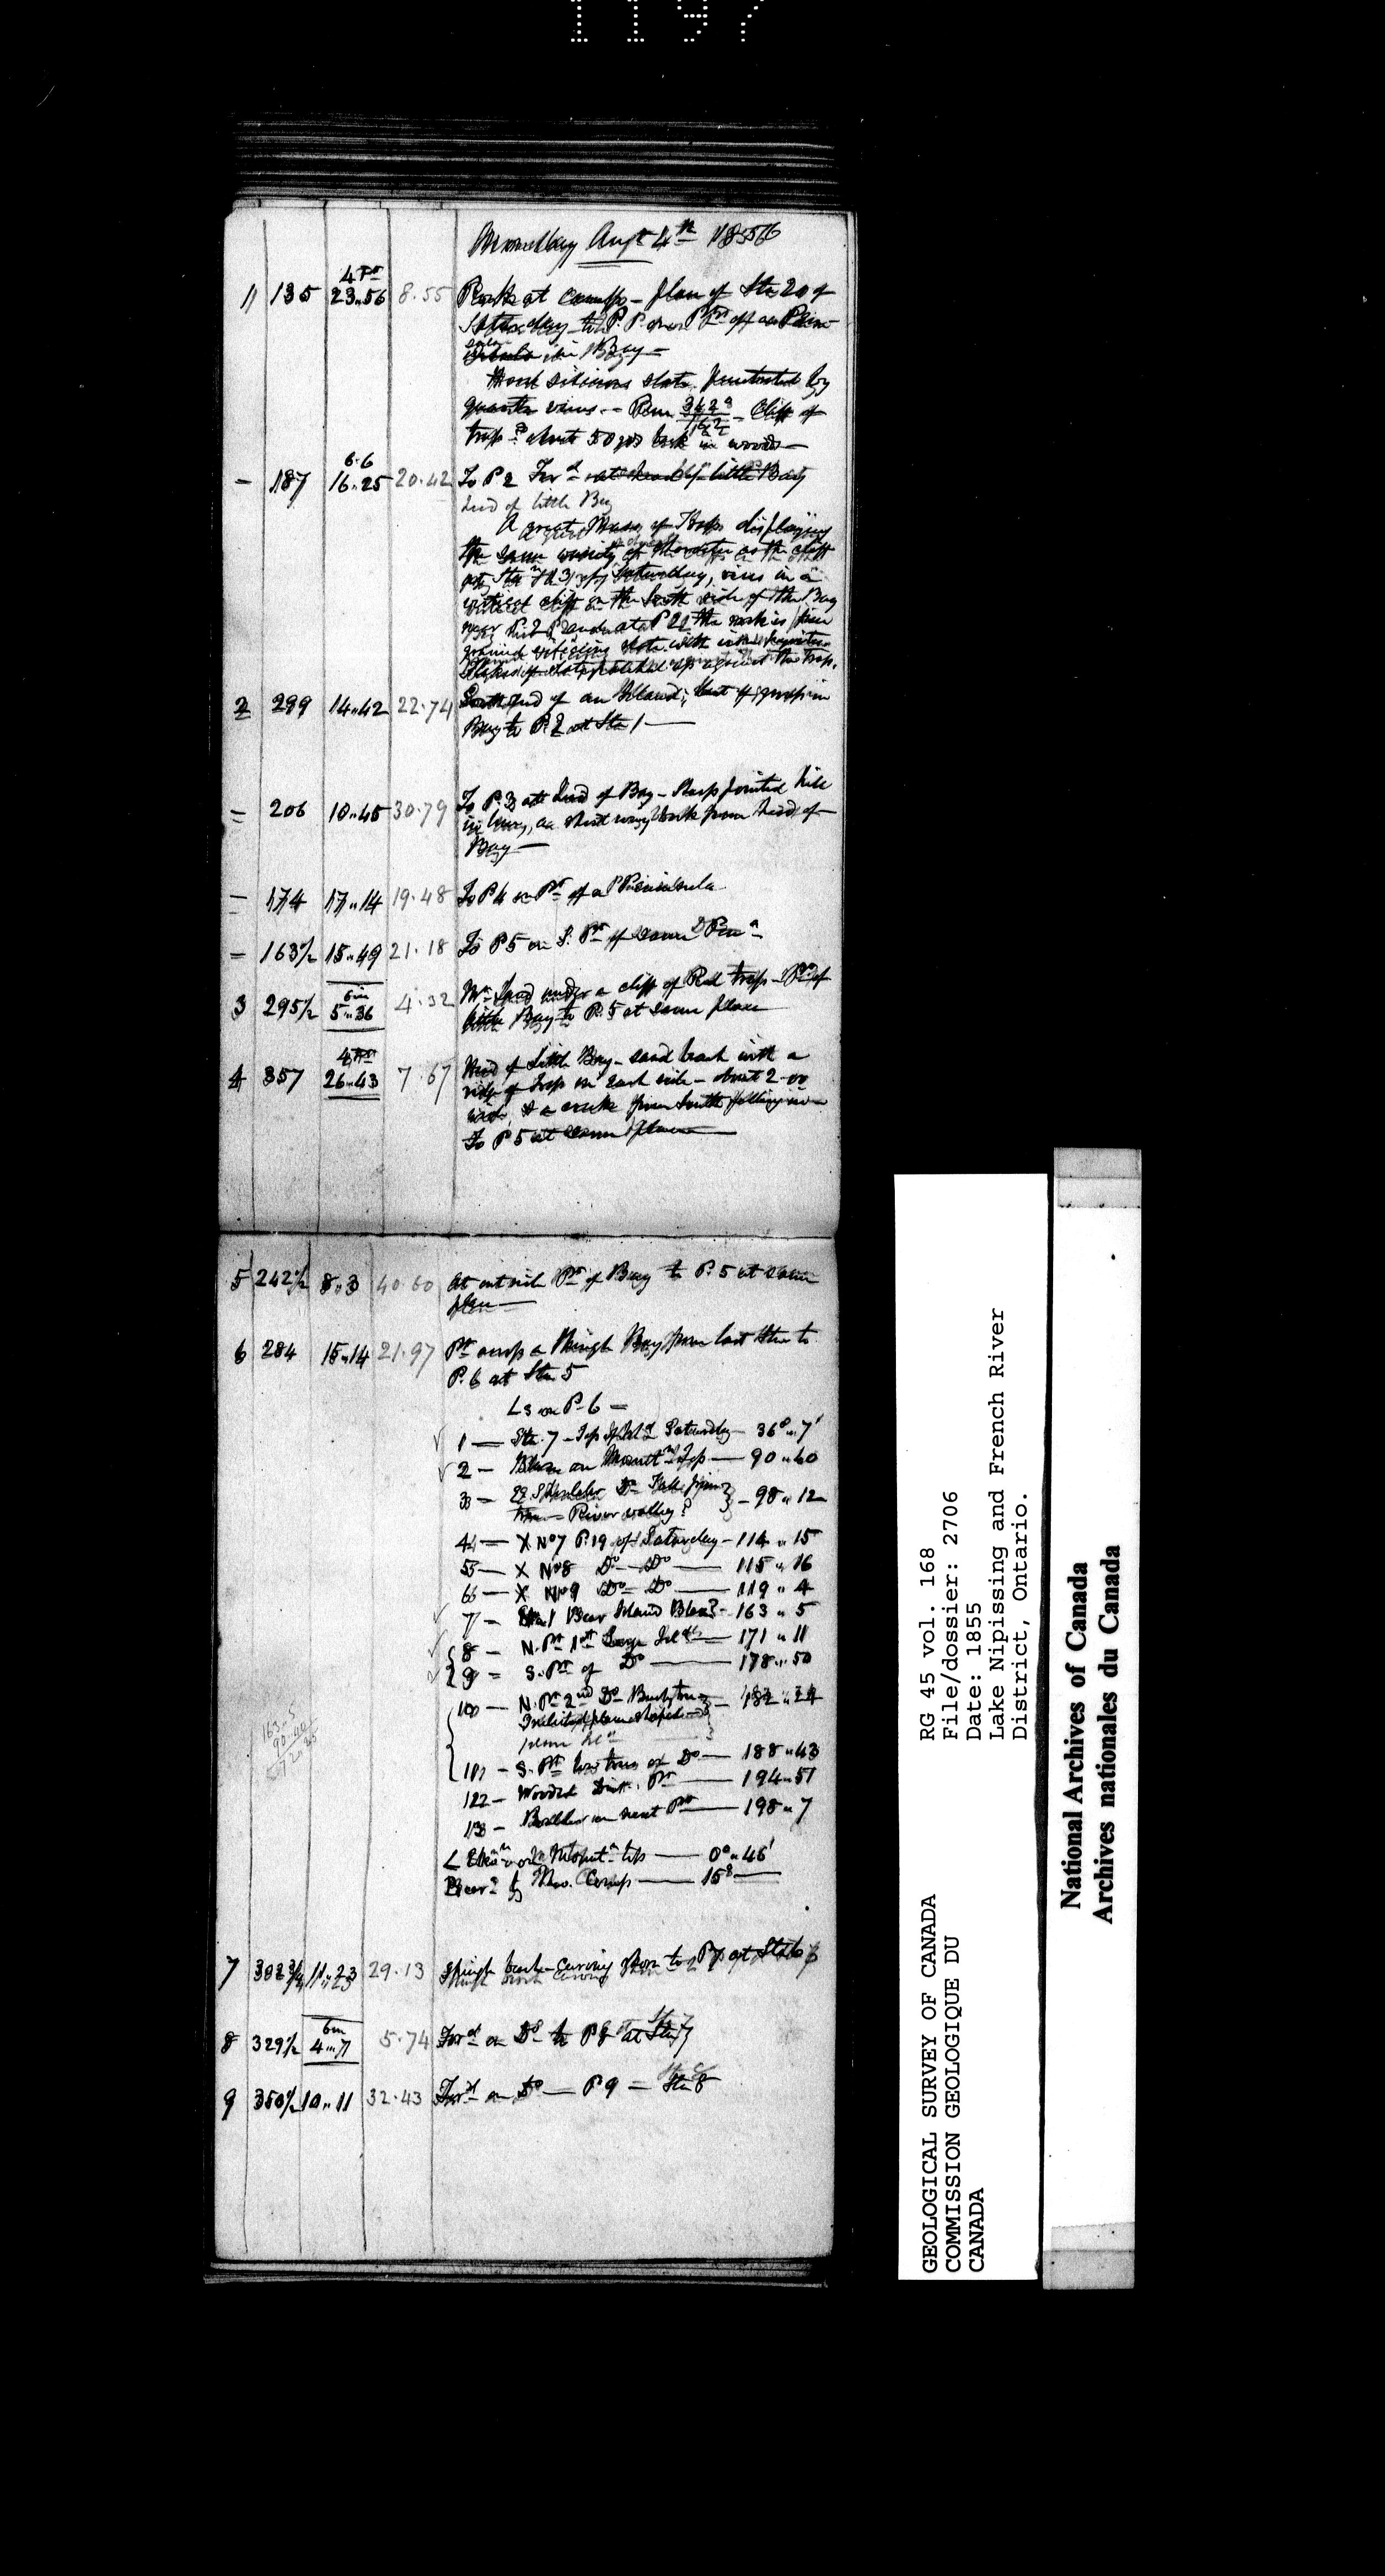 1197
Monday Augt 4th 1856
4 Ft
1 135 23"56 8.55 Rocks at camp - place of Sta 20 of
Saturday - to P. P. on a Pt of a Penin-
sula in Bay -
Hard silicious slate penetrated by
quartz veins - Cliff of
trap about 50 yds back in woods -
6.6
- 187 16"25 20.42 To P 2 Ford at head of little Bay
head of little Bay
A great mass of trap displaying
the same variety of character as the cliff
at Sta of Saturday, rises in a
vertical cliff on the South side of the Bay
near P 2 and at P 2 the rock is fine
grained slate with
slate up against the trap.
2 299 14"42 22.74 South end of an Island, of group in
Bay to P. 2 at Sta 1 -
= 206 10"45 30.79 To P. 3 at head of Bay - Sharp pointed hill
a short way back from head of
Bay -
= 174 17"14 19.48 To P 4 on Pt of a Peninsula
= 163½ 15"49 21.18 To P 5 on S. Pt of same Pena
6 in
3 295½ 5"36 4.32 under a cliff of Red trap - Pt of
little Bay to P. 5 at same place
4 Ft
4 357 26"43 7.67 Head of little Bay - sand beach with a
ridge of trap on each side - about 2.00
wide & a creek from South falling in
To P 5 at same place
5 242½ 8"3 40.60 At outside Pt of Bay to P. 5 at same
place
6 284 15"14 21.97 Pt across a Shingle Bay from last Sta to
P. 6 at Sta 5
Ls on P. 6 =
1 - Sta. 7 - Top of Isld Saturday - 36°"7'
2 - Blaze on Mount Top - 90"60
3 = - 98"12
River valley?
4 - X No 7 P. 19 of Saturday - 114"15
5 - X No 8 Do - Do - 115"16
6 - X No 9 Do - Do - 119"4
7 - Sta. 1 Bear Island Blaze - 163"5
8 - N. Pt 1st Large Isld - 171"11
9 = S. Pt of Do - 178"50
10 - N. Pt 2nd Do - 182"24
11 - S. Pt low trees of Do - 188"43
12 - Wooded Dist. Pt - 194"51
13 - Boulder on next Pt - 198"7
163.5
L Elevn on Mount tip - 0°"46'
Bearg by Mic. Comps - 15°
7 382¾ 11"23 29.13 Shingle beach - curving shore to P 7 at Sta 6
6 in
8 329½ 4"7 5.74 Forwd on Do to P 8 at Sta 7
9 350½ 10"11 32.43 Forwd on Do - P 9 = Sta 8
GEOLOGICAL SURVEY OF CANADA
COMMISSION GEOLOGIQUE DU
CANADA
RG 45 vol. 168
File/dossier: 2706
Date: 1855
Lake Nipissing and French River
District, Ontario.
National Archives of Canada
Archives nationales du Canada